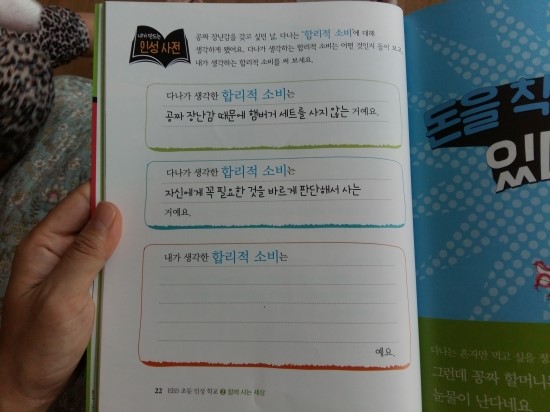 내가 만드는
인성 사전
공짜 장난감을 갖고 싶던 날, 다나는 '합리적 소비'에 대해
생각하게 됐어요. 다나가 생각하는 합리적 소비는 어떤 것인지 들어 보고,
내가 생각하는 합리적 소비를 써 보세요.
다나가 생각한 합리적 소비는
공짜 장난감 때문에 햄버거 세트를 사지 않는 거예요.
다나가 생각한 합리적 소비는
자신에게 꼭 필요한 것을 바르게 판단해서 사는
거예요.
내가 생각한 합리적 소비는
예요.
22 EBS 초등 인성 학교 2 함께 사는 세상
돈을
있
다나는 혼자만 먹고 싶을 정
그런데 꽁짜 할머니
눈물이 난다네요